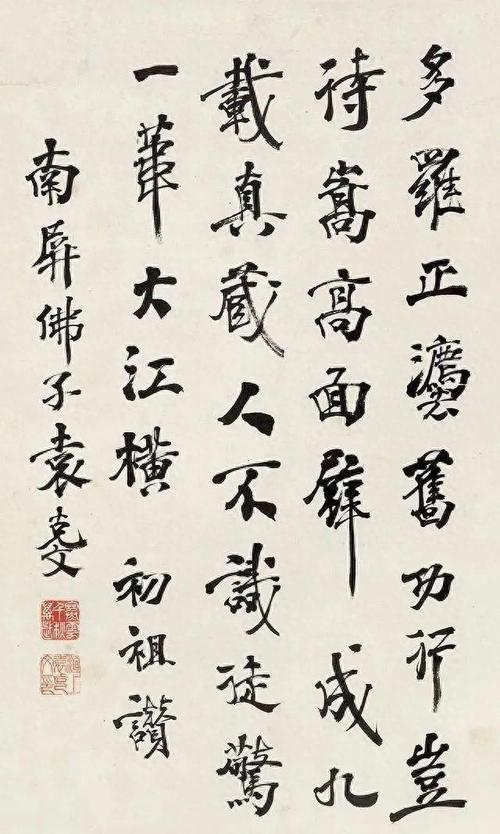 多羅正灋舊功行豈
待嵩高面壁成九
載真藏人不識徒驚
一葦大江橫 初祖讚
南屏佛子袁克文